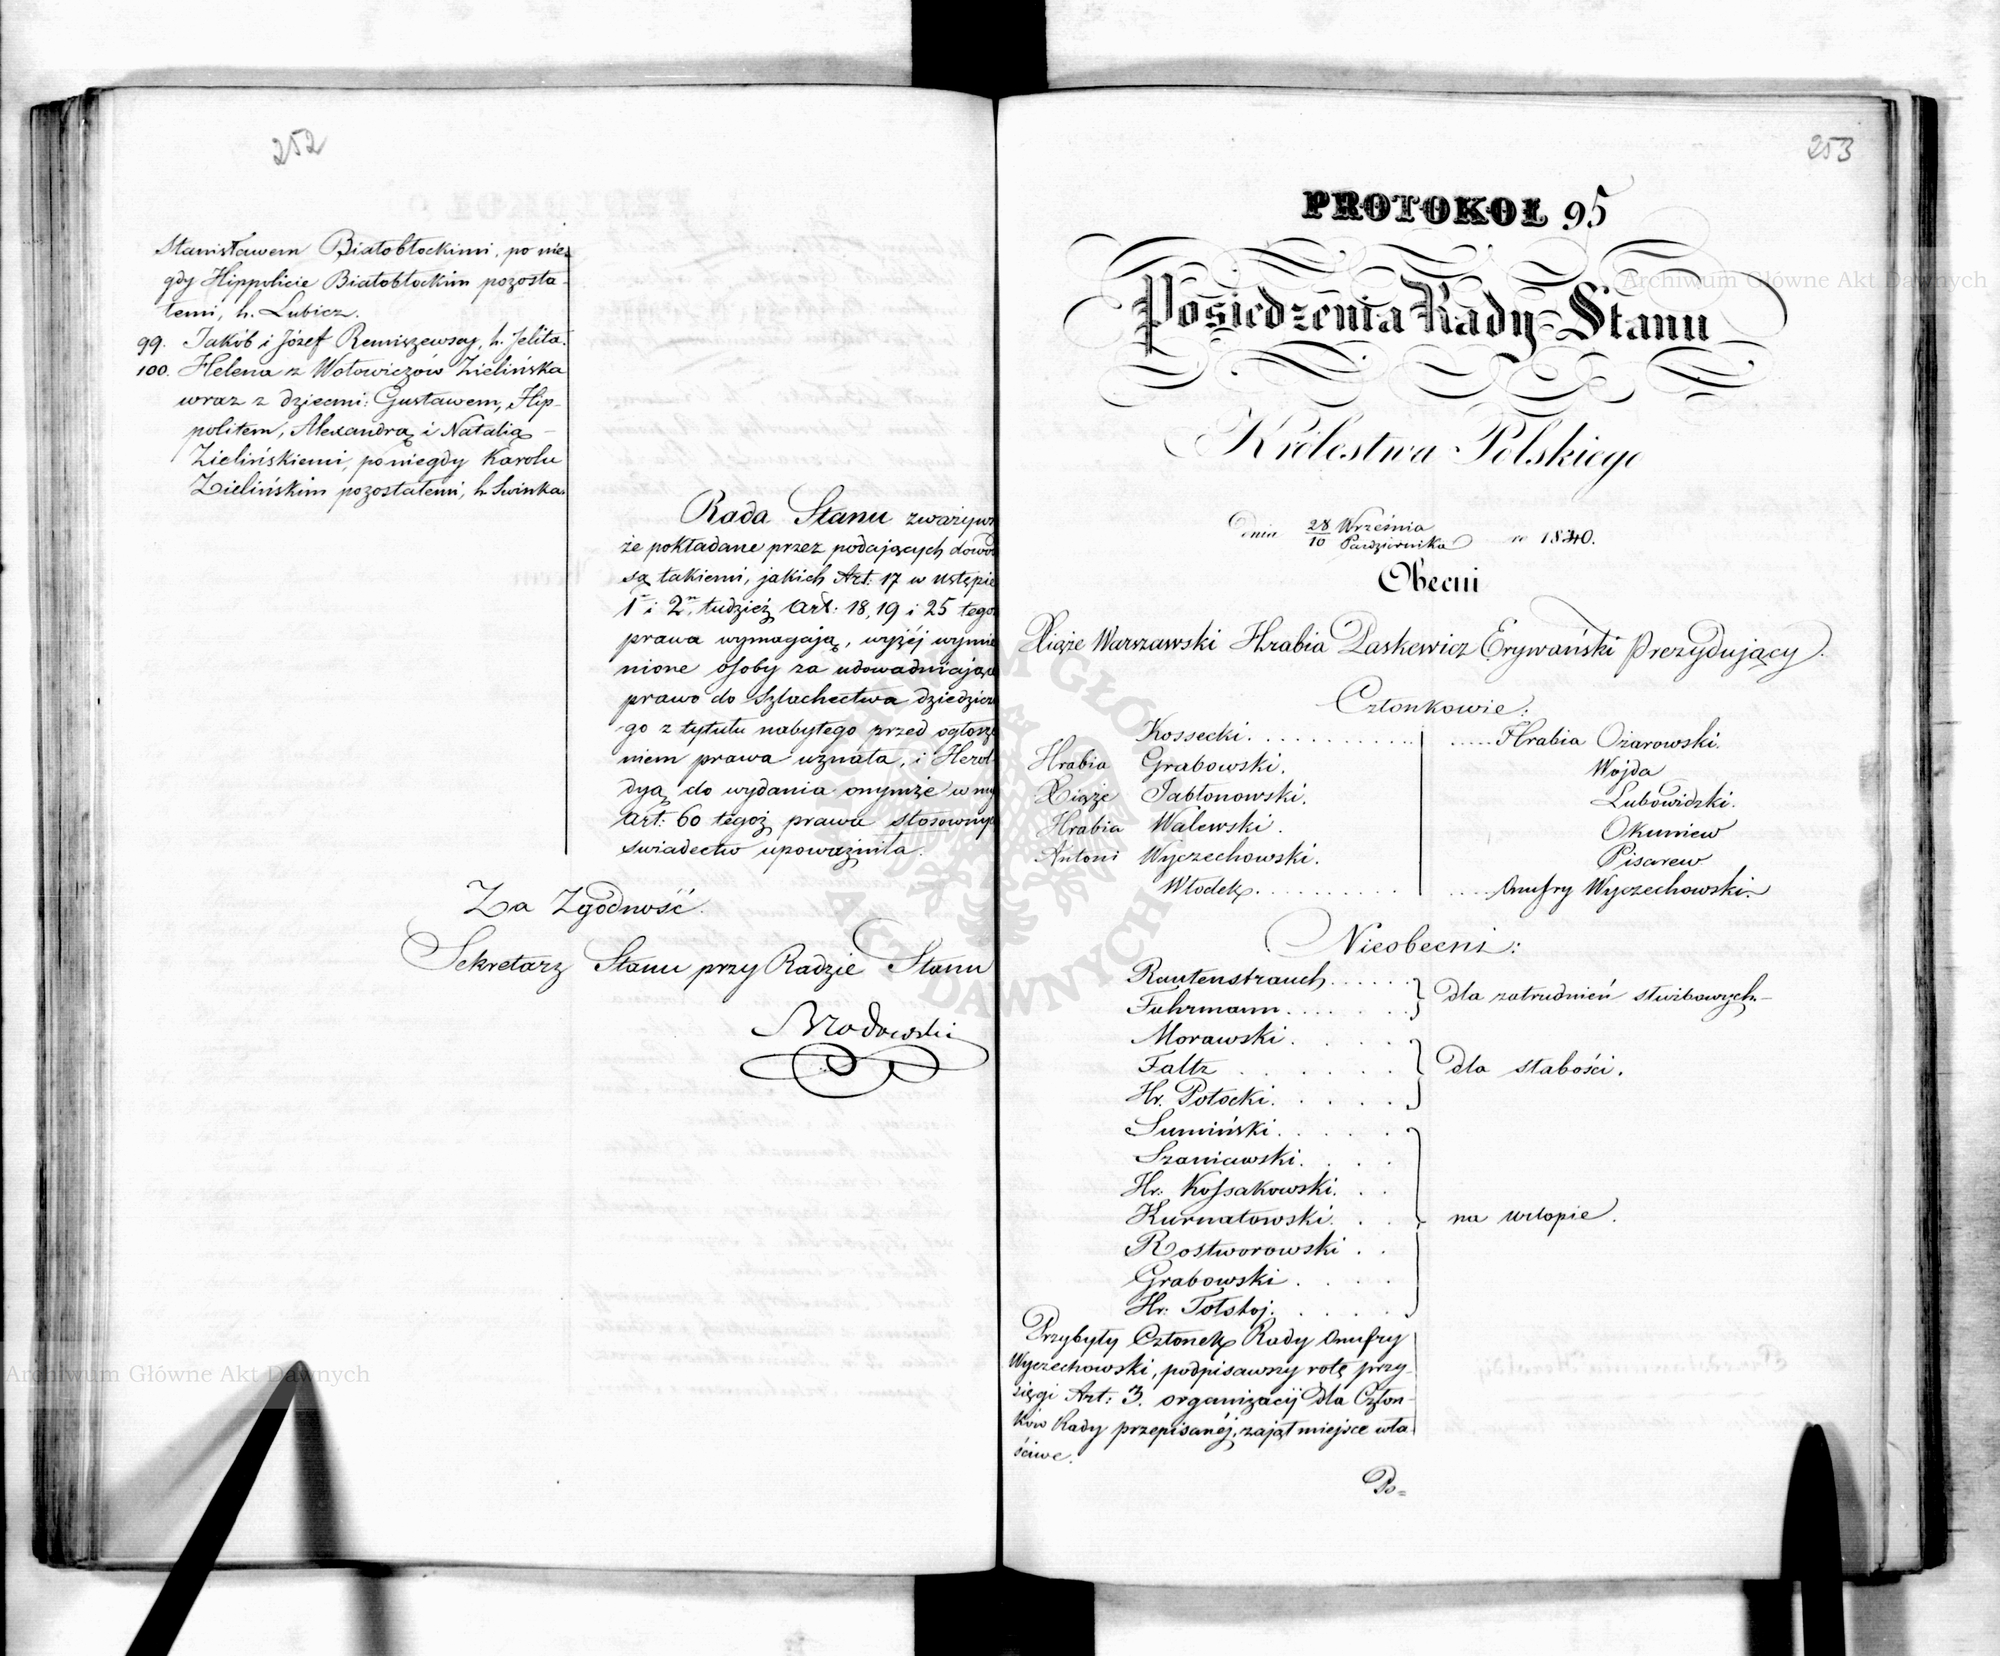 252
Stanisławem Białobłockimi, po nie-
gdy Hippolicie Białobłockim pozosta-
łemi, h. Lubicz.
99. Jakób i Józef Remiszewscy, h. Jelita.
100. Helena z Wołowiczów Zielińska
wraz z dziećmi: Gustawem, Hip-
politem, Alexandrą i Natalią
Zielińskiemi, po niegdy Karolu
Zielińskim pozostałemi, h. Swinka.
Rada Stanu zważywsz
że pokładane przez podających dowo
są takiemi, jakich Art: 17 w ustępie
1m i 2m, tudzież Art: 18, 19 i 25 tegoż
prawa wymagają, wyżéj wymie
nione osoby za udowadniające
prawo do Szlachectwa dziedziczn
go z tytułu nabytego przed ogłosze
niem prawa uznała, i Herol-
dyą do wydania onymże w myśl
Art: 60 tegoż prawa stosownych
świadectw upoważniła.
Za Zgodność.
Sekretarz Stanu przy Radzie Stanu
Brodowski
253
PROTOKOŁ 95
Posiedzenia Rady Stanu
Królestwa Polskiego
Dnia 28/10 Września/Października ro 1840.
Obecni
Xiąże Warszawski Hrabia Paskewicz Erywański Prezydujący.
Członkowie:
Kossecki. . . . . . . . . . . . . . . . . Hrabia Ożarowski.
Hrabia Grabowski. Wojda
Xiąże Jabłonowski. Lubowidzki.
Hrabia Walewski. Okuniew
Antoni Wyczechowski. Pisarew
Włodek. . . . . . . . . . . . . . . Onufry Wyczechowski.
Nieobecni:
Rautenstrauch . . . . . . dla zatrudnień służbowych.
Fuhrmann . . . . . .
Morawski . . . . .
Faltz . . . . . . dla słabości.
Hr. Potocki. . . . .
Sumiński. . . . .
Szaniawski. . . .
Hr: Kossakowski. . .
Kurnatowski. . . na urlopie.
Rostworowski . .
Grabowski . . . .
Hr: Tołstoj. . . . .
Przybyły Członek Rady Onufry
Wyczechowski, podpisawszy rotę przy-
sięgi Art: 3. organizacyi dla Człon-
ków Rady przepisanéj, zajął miejsce wła
ściwe.
Po=
Archiwum Główne Akt Dawnych
Archiwum Główne Akt Dawnych